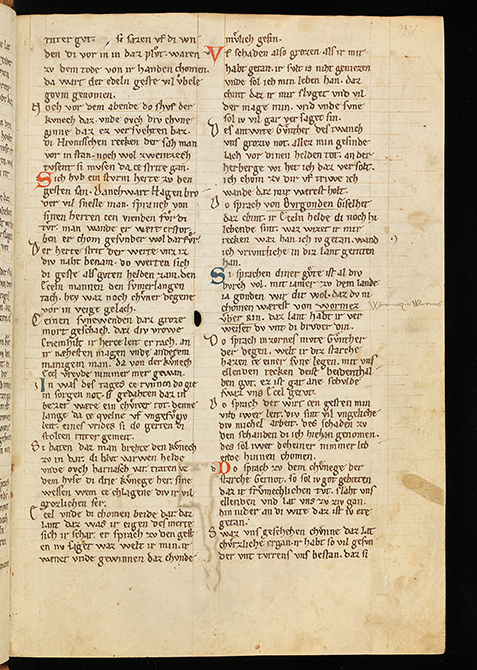 riter gvt.     si sazen vf di wi
den di vor in in daz plvt. waren
zv dem tode von ir handen chomen.
da wart der edeln geste vil vbele
govm genomen.
Noch vor dem abende do schvf der
kvnech daz. vnde ovch div chvne
ginne daz ez versvehten baz.
di Hvnischen recken der sah man
vor in stan. noch wol zweinzech
tvsent si mvsen da ce strite gan.
Sich hvb ein stvrm herte zv den
gesten san. Danchwart Hagen brv
der vil snelle man. spranch von
sinen herren cen vienden fvr di
tvr. man wande er were erstor
ben er chom gesvnder wol dar fvr.
Der herte strit der werte vnz iz
div naht benam. do werten sich
di geste als gvten helden zam. den
Eceln mannen den svmerlangen
tach. hey waz noch chvner degene
vor in veige gelach.
Ce einen svnewenden der groze
mort geschach. daz div vrowe
Criemhilt ir herce leit er rach. an
ir næhesten magen vnde anderem
manigem man. da von der kvnech
Ecel vrevde nimmer mer gewan.
In was des tages ce rvnnen do gie
in sorgen not. si gedahten daz in
bezzer were ein chvrcer tot denne
lange da ce qvelne vf vngefvgiv
leit. eines vrides si do gerten di
stolcen ritter gemeit.
Si baten daz man brehte den kvnech
zv in dar. di blvt varwen helde
vnde ovch harnasch var. traten vz
dem hvse di drie kvnege her. sine
wessen wem ce chlagene div ir vil
grozlichen ser.
Ecel vnde di chomen beide dar. daz
lant daz was ir eigen des merte
sich ir schar. er sprach zv den gest
en nv saget waz welt ir min. ir
wenet vnde gewinnen daz chvnde
mvlich gesin.
Vf schaden also grozen als ir mir
habt getan. ir svlt is niht geniezen
vnde sol ich min leben han. daz
chint daz ir mir slvget vnd vil
der mage min. vrid vnde svne
sol iv vil gar versaget sin.
Des antwrte Gvnther des twanch
vns groziv not. allez min gesinde
lach vor dinen helden tot. an der
herberge wi het ich daz versolt.
ich chom zv dir vf triwe ich
wande daz mir werest holt.
Do sprach von Bvrgonden Giselher
daz chint. ir Eceln helde di noch hi
lebende sint. waz wizet ir mir
recken waz han ich iv getan. wand
ich vrivntliche in diz lant geriten
han.
Si sprachen diner gvte ist al div
bvrch vol. mit iamer zv dem lande
ia gonden wir dir wol. daz dv ni
chomen werest von wormez
vber rin. daz lant habt ir ver
weiset dv vnt di brvder din.
Do sprach in zornes mvte Gvnther
der degen. welt ir diz starche
hazzen ce einer svne legen. mit vns
ellenden recken deist beidenthal
ben gvt. ez ist gar ane schvlde
swaz vns Ecel getvt.
Do sprach der wirt cen gesten min
vnd iwer leit. div sint vil vngeliche
div michel arbeit. des schaden zv
den schanden di ich hiehan genomen.
des sol iwer deheiner nimmer leb
ende hinnen chomen.
Do sprach zv dem chvnege der
starche Gernot. so sol iv got gebieten
daz ir frivnechlichen tvt. slaht vns
ellenden vnd lat vns zv ziv gan.
hin nider an di wite daz ist iv ere
getan.
Swaz vns geschehen chvnne daz lat
chvrzliche ergan. ir habt so vil gesvn
der vnt tvrrens vns bestan. daz si